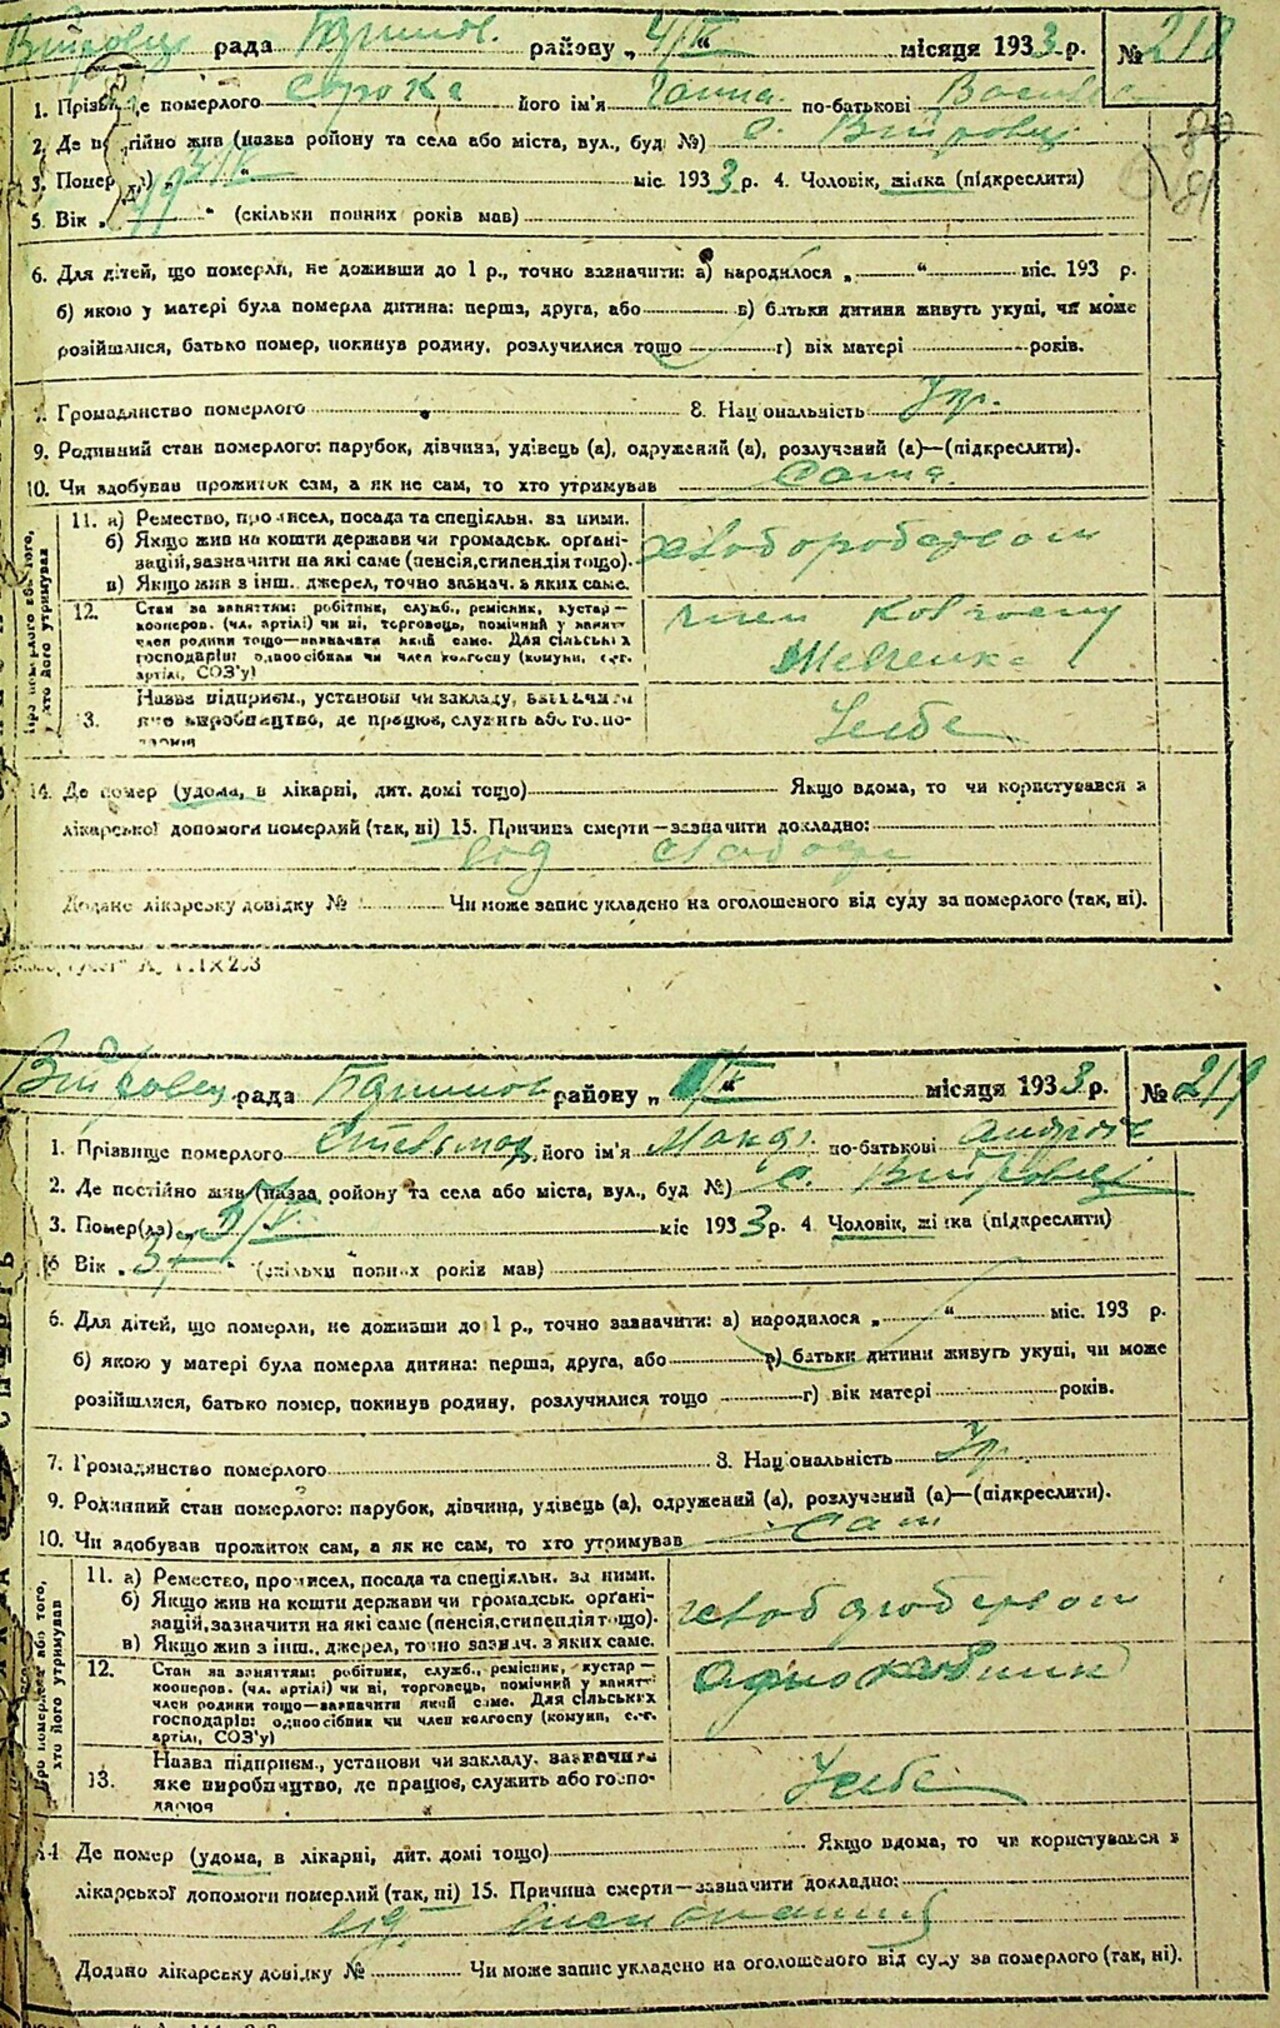 рада району „ 4/V “ місяця 1933 р. № 218
1. Прізвище померлого Сорока його ім'я Ганна по-батькові
2. Де постійно жив (назва ройону та села або міста, вул., буд №) с.
3. Помер(ла) „ 3/V “ міс. 1933 р. 4. Чоловік, жінка (підкреслити)
80
81
5. Вік „ “ (скільки повних років мав)
6. Для дітей, що померли, не доживши до 1 р., точно зазначити: а) народилося „ “ міс. 193 р.
б) якою у матері була померла дитина: перша, друга, або в) батьки дитини живуть укупі, чи може
розійшлися, батько помер, покинув родину, розлучилися тощо г) вік матері років.
7. Громадянство померлого 8. Національність Укр.
9. Родинний стан померлого: парубок, дівчина, удівець (а), одружений (а), розлучений (а)—(підкреслити).
10. Чи здобував прожиток сам, а як не сам, то хто утримував Сама
Про померлого або того, хто його утримував
11. а) Ремество, промисел, посада та спеціяльн. за ними.
б) Якщо жив на кошти держави чи громадськ. органі-
зацій, зазначити на які саме (пенсія, стипендія тощо).
в) Якщо жив з інш. джерел, точно зазнач. з яких саме.
хліборобством
12. Стан за заняттям: робітник, служб., ремісник, кустар—
кооперов. (чл. артілі) чи ні, торговець, помічний у занятт.
член родини тощо—зазначати який саме. Для сільських
господарів: одноосібник чи член колгоспу (комуни, с.-г.
артілі, СОЗ'у)
член колгоспу
Шевченка
13. Назва підприєм., установи чи закладу, зазначити
яке виробництво, де працює, служить або госпо-
дарює
У себе
14. Де помер (удома, в лікарні, дит. домі тощо) Якщо вдома, то чи користувався з
лікарської допомоги померлий (так, ні) 15. Причина смерти—зазначити докладно:
Додано лікарську довідку № Чи може запис укладено на оголошеного від суду за померлого (так, ні).
рада району „ “ місяця 1933 р. № 219
1. Прізвище померлого його ім'я по-батькові
2. Де постійно жив (назва ройону та села або міста, вул., буд №) с.
3. Помер(ла) „ “ міс 1933 р. 4 Чоловік, жінка (підкреслити)
5 Вік „ “ (скільки повних років мав)
6. Для дітей, що померли, не доживши до 1 р., точно зазначити: а) народилося „ “ міс. 193 р.
б) якою у матері була померла дитина: перша, друга, або в) батьки дитини живуть укупі, чи може
розійшлися, батько помер, покинув родину, розлучилися тощо г) вік матері років.
7. Громадянство померлого 8. Національність Укр.
9. Родинний стан померлого: парубок, дівчина, удівець (а), одружений (а), розлучений (а)—(підкреслити).
10. Чи здобував прожиток сам, а як не сам, то хто утримував Сам
Про померлого або того, хто його утримував
11. а) Ремество, промисел, посада та спеціяльн. за ними.
б) Якщо жив на кошти держави чи громадськ. органі-
зацій, зазначити на які саме (пенсія, стипендія тощо).
в) Якщо жив з інш., джерел, точно зазнач. з яких саме.
хліборобством
12. Стан за заняттям: робітник, служб., ремісник, кустар—
кооперов. (чл. артілі) чи ні, торговець, помічний у занятт.
член родини тощо—зазначати який саме. Для сільських
господарів: одноосібник чи член колгоспу (комуни, с.-г.
артілі, СОЗ'у)
13. Назва підприєм., установи чи закладу, зазначити
яке виробництво, де працює, служить або госпо-
дарює
У себе
14 Де помер (удома, в лікарні, дит. домі тощо) Якщо вдома, то чи користувався з
лікарської допомоги померлий (так, ні) 15. Причина смерти—зазначити докладно:
від виснаження
Додано лікарську довідку № Чи може запис укладено на оголошеного від суду за померлого (так, ні).